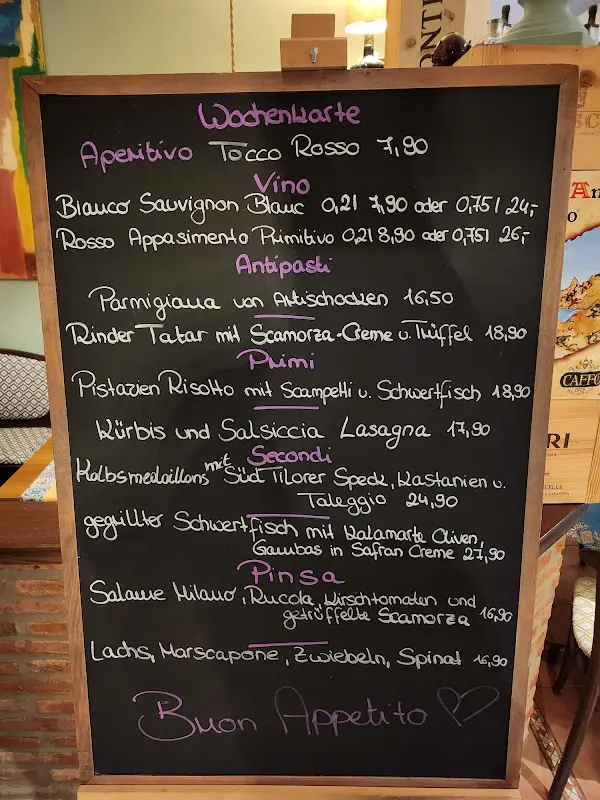 Wochenkarte
Aperitivo Tocco Rosso 7,90
Vino
Bianco Sauvignon Blanc 0,2l 7,90 oder 0,75l 24,-
Rosso Appasimento Primitivo 0,2l 8,90 oder 0,75l 26,-
Antipasti
Parmigiana von Artischocken 16,50
Rinder Tatar mit Scamorza-Creme u. Trüffel 18,90
Primi
Pistazien Risotto mit Scampetti u. Schwertfisch 18,90
Kürbis und Salsiccia Lasagna 17,90
Secondi
Kalbsmedaillons mit Süd Tilorer Speck, Kastanien u.
Taleggio 24,90
gegrillter Schwertfisch mit Kalamarta Oliven,
Gambas in Safran Creme 27,90
Pinsa
Salame Milano, Rucola, Kirschtomaten und
getrüffelte Scamorza 16,90
Lachs, Marscapone, Zwiebeln, Spinat 16,90
Buon Appetito
CAFFO